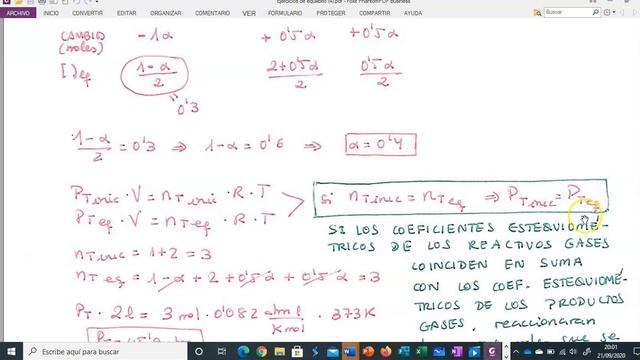 Ejercicios de equilibrio (4).pdf - Foxit PhantomPDF Business
ARCHIVO INICIO CONVERTIR EDITAR ORGANIZAR COMENTARIO VER FORMULARIO PROTEGER COMPARTIR AYUDA Buscar
CAMBIO -1α +0'5α +0'5α
(moles)
[ ]eq (1-α)/2 (2+0'5α)/2 0'5α/2
0'3
(1-α)/2 = 0'3 ⇒ 1-α = 0'6 ⇒ α = 0'4
PT inic · V = nT inic · R · T
PT eq · V = nT eq · R · T
si nT inic = nT eq ⇒ PT inic = PT eq
nT inic = 1+2 = 3
nT eq = 1-α + 2 + 0'5α + 0'5α = 3
PT · 2l = 3 mol · 0'082 atm l / K mol · 373K
SI LOS COEFICIENTES ESTEQUIOMÉ-
TRICOS DE LOS REACTIVOS GASES
COINCIDEN EN SUMA
CON LOS COEF. ESTEQUIOMÉ-
TRICOS DE LOS PRODUCTOS
GASES, reaccionarán
que se
Escribe aquí para buscar
20:01
21/09/2020